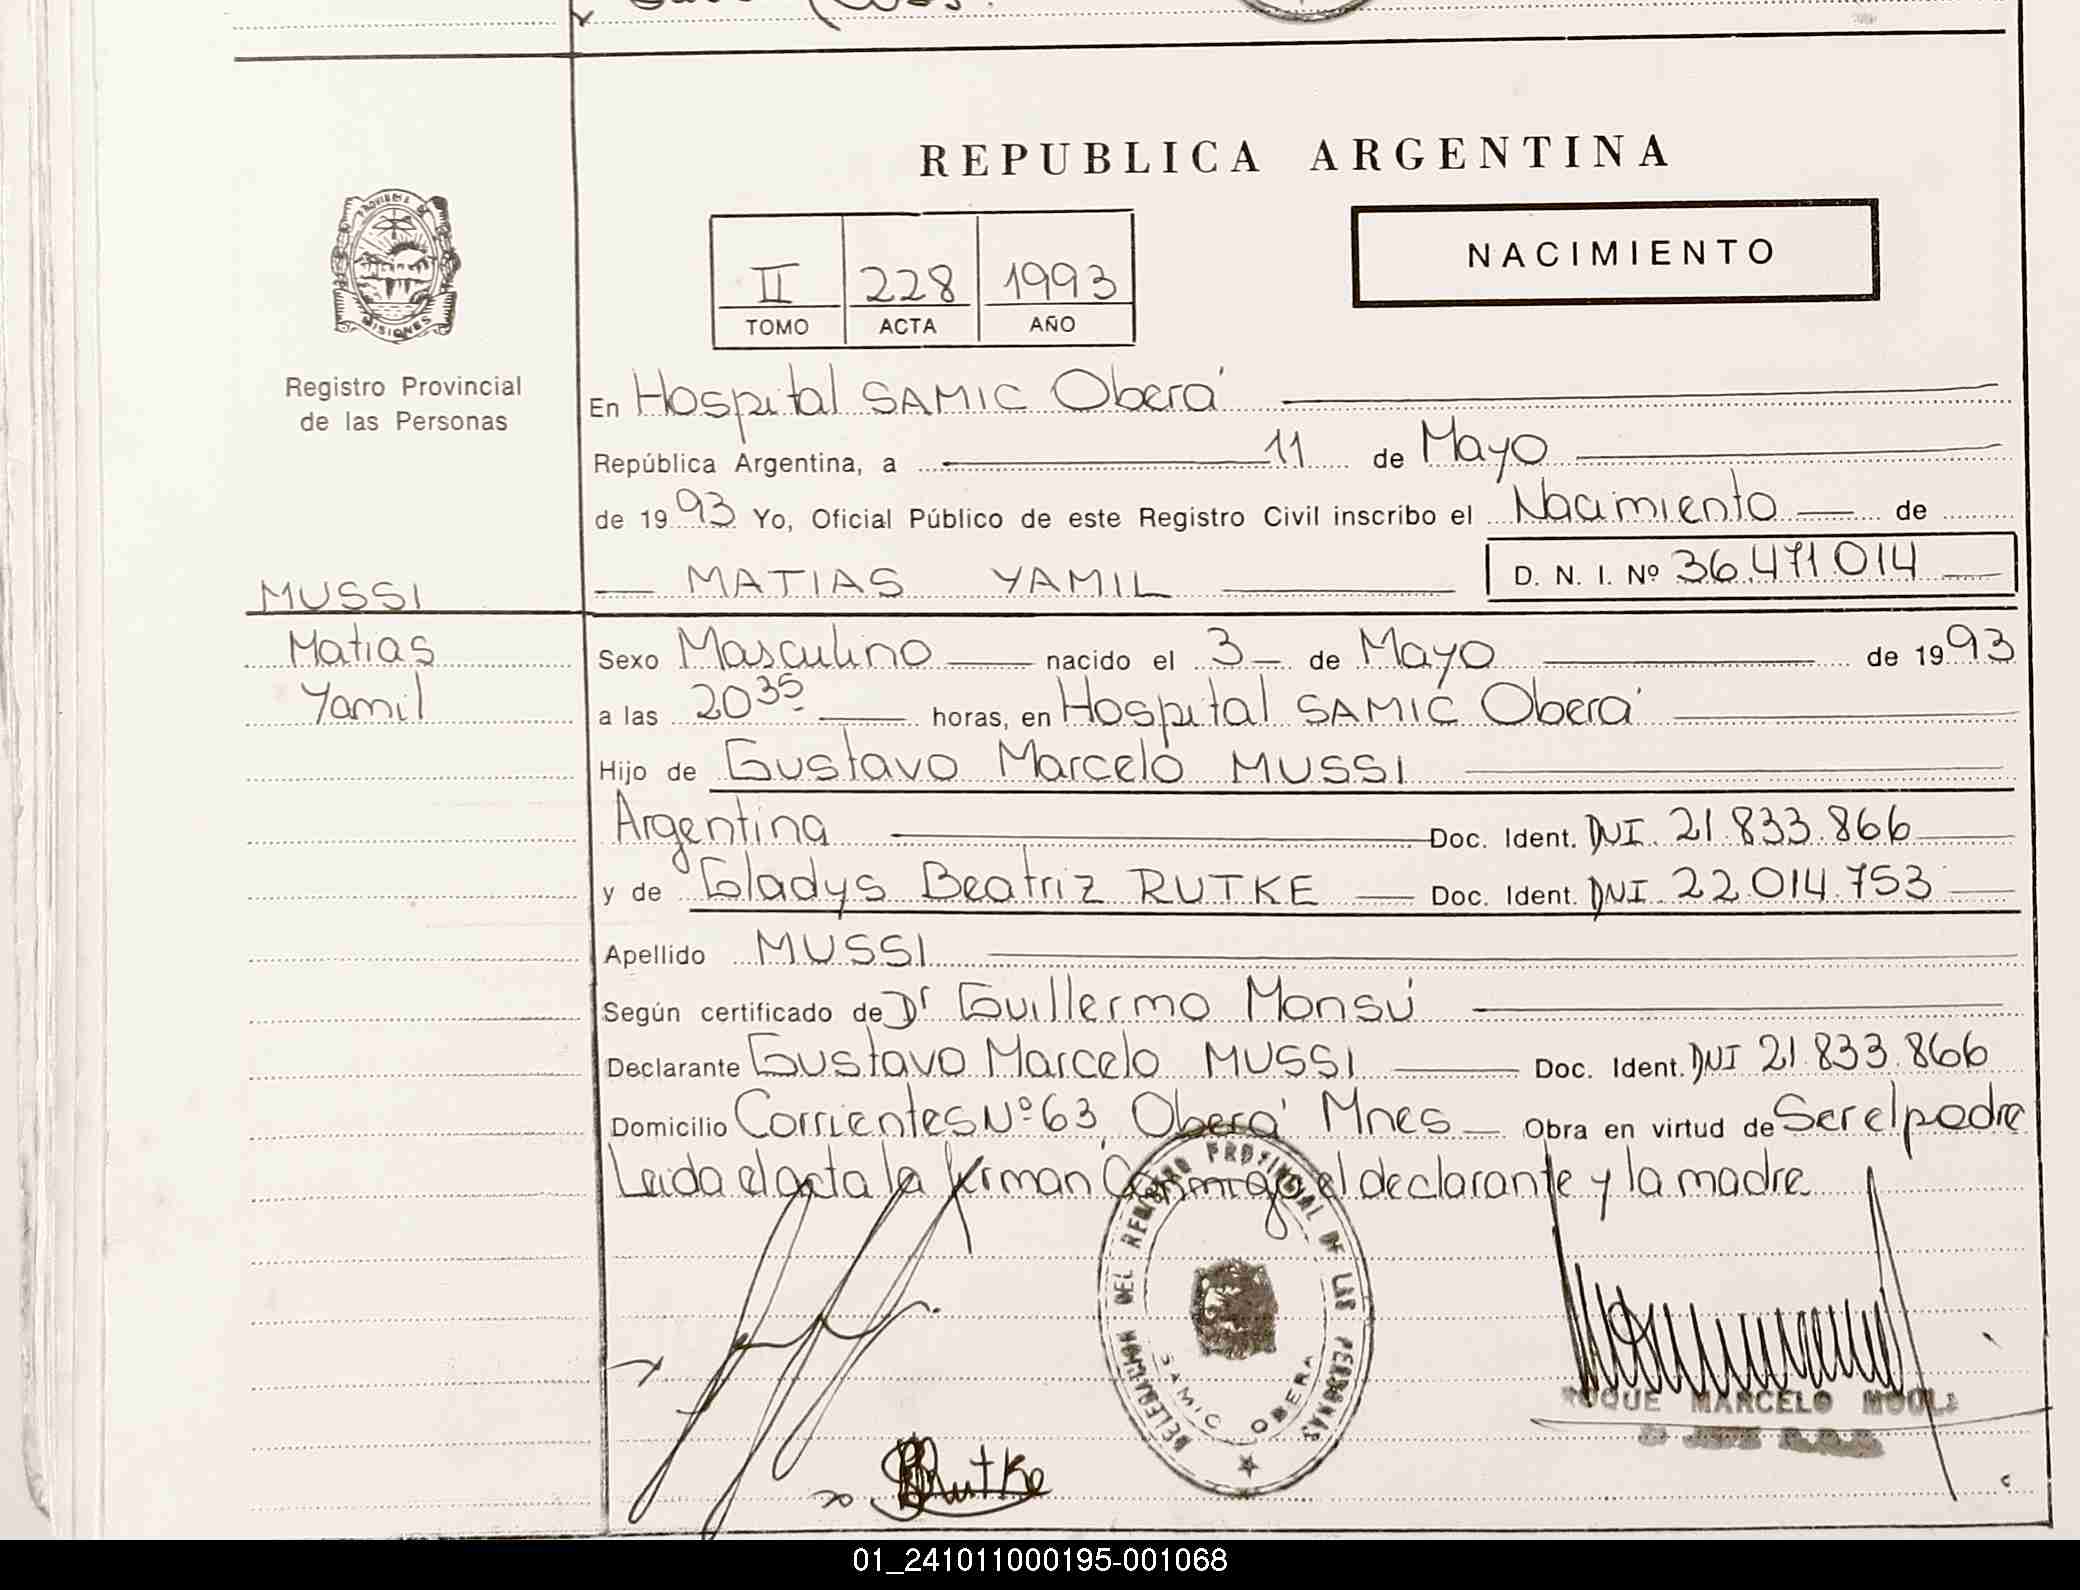 REPUBLICA ARGENTINA
NACIMIENTO
II 228 1993
TOMO ACTA AÑO
PROVINCIA DE
MISIONES
Registro Provincial
de las Personas
En Hospital SAMIC Oberá
República Argentina, a 11 de Mayo
de 1993 Yo, Oficial Público de este Registro Civil inscribo el Nacimiento de
MATIAS YAMIL D. N. I. Nº 36.471014
MUSSI
Matias
Yamil
Sexo Masculino nacido el 3 de Mayo de 1993
a las 20 35 horas, en Hospital SAMIC Oberá
Hijo de Gustavo Marcelo MUSSI
Argentina Doc. Ident. DNI. 21.833.866
y de Gladys Beatriz RUTKE Doc. Ident. DNI 22.014.753
Apellido MUSSI
Según certificado de Dr Guillermo Monsú
Declarante Gustavo Marcelo MUSSI Doc. Ident. DNI 21.833.866
Domicilio Corrientes Nº 63, Oberá Mnes Obra en virtud de Ser el padre
Leida el acta la firman Conmigo el declarante y la madre
DELEGACION DEL REGISTRO PROVINCIAL DE LAS PERSONAS
SAMIC OBERA
ROQUE MARCELO
Rutke
01_241011000195-001068